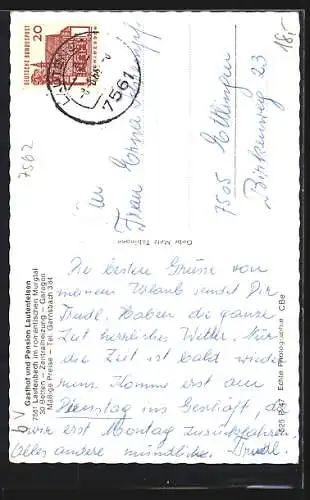 DEUTSCHE BUNDESPOST
20
7561
18,-
7562
Frau Erna
7505 Ettlingen
Birkenweg 23
Gebr. Metz Tübingen
Die besten Grüsse von
meinem Urlaub sendet Dir
Trudl. Haben die ganze
Zeit herrliches Wetter. Nur
die Zeit ist bald wieder
rum. Komme erst am
Dienstag ins Geschäft, da
wir erst Montag zurückfahren.
Alles andere mündlich. Trudl.
Gasthof und Pension Lautenfelsen
7561 Lautenbach im romantischen Murgtal
30 Betten – Zentralheizung – Garagen
Mäßige Preise – Tel. Gernsbach 384
Echte Photographie